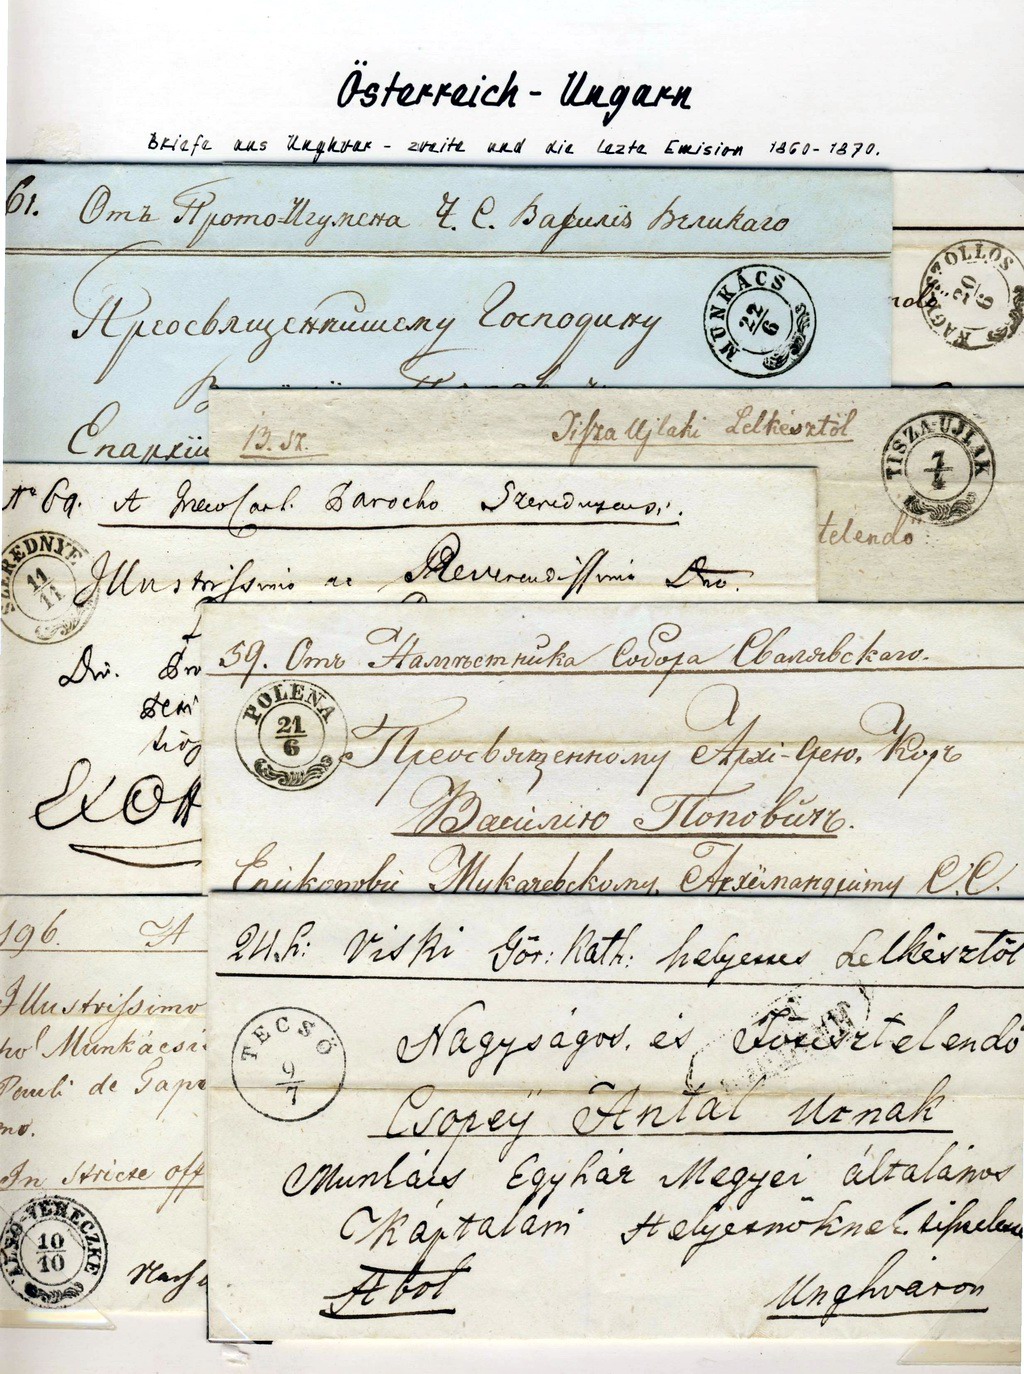 Österreich - Ungarn
Briefe aus Unghvar - zweite und die lezte Emision 1860-1870.
61. Отъ Прото-Игумена Ч. С. Василія Великаго
NAGY-SZOLLOS 20/6
Преосвященнѣйшему Господину
MUNKÁCS 22/6
Епархіи
13. sz. Tisza Ujlaki Lelkésztöl
TISZA-UJLAK 7/4
telendö
Nº 69. A Parocho
SZEREDNYE 11/11
Illustrissimo ac Reverendissimo Dno.
Dn.
59. Отъ Намѣстника Собора Свалявскаго.
POLENA 21/6
Преосвященному Архі-
Василію Поповичъ.
Епископови Мукачевскому, Архімандриту С. С.
196. A
Illustrissimo
Munkácsi
Pauli de
mo.
In Stricte off
ALSÓ-VERECZKE 10/10
24. h: Viski Gör: Kath: helyenes Lelkésztöl
TECSÖ 9/7
Nagyságos. és Fötisztelendö
Csopey Antal Urnak
Munkács Egyház Megyei általános
Káptalani Helyesnöknek
Abol
Unghváron